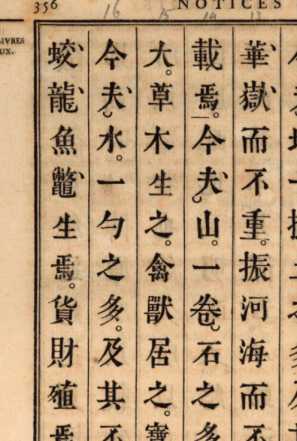 356
NOTICES
16
15
14
13
華嶽而不重。振河海而不
載焉。今夫山。一卷石之多
大。草木生之。禽獸居之。寶
今夫水。一勺之多。及其不
蛟龍魚鼈生焉。貨財殖焉